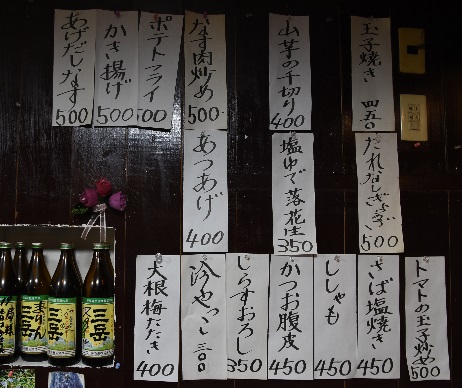 玉子焼き 四五〇
山芋の千切り 400
なす肉炒め 500
ポテトフライ 500
かき揚げ 500
あげだしなす 500
たれなしぎょうざ 500
塩ゆで落花生 350
あつあげ 400
トマトの玉子炒め 500
さば塩焼き 450
ししゃも 450
かつお腹皮 450
しらすおろし 350
冷やっこ 三〇〇
大根梅たたき 400
三岳
三岳